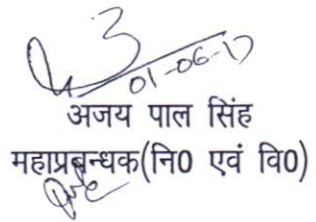 01-06-17
अजय पाल सिंह
महाप्रबन्धक(नि0 एवं वि0)